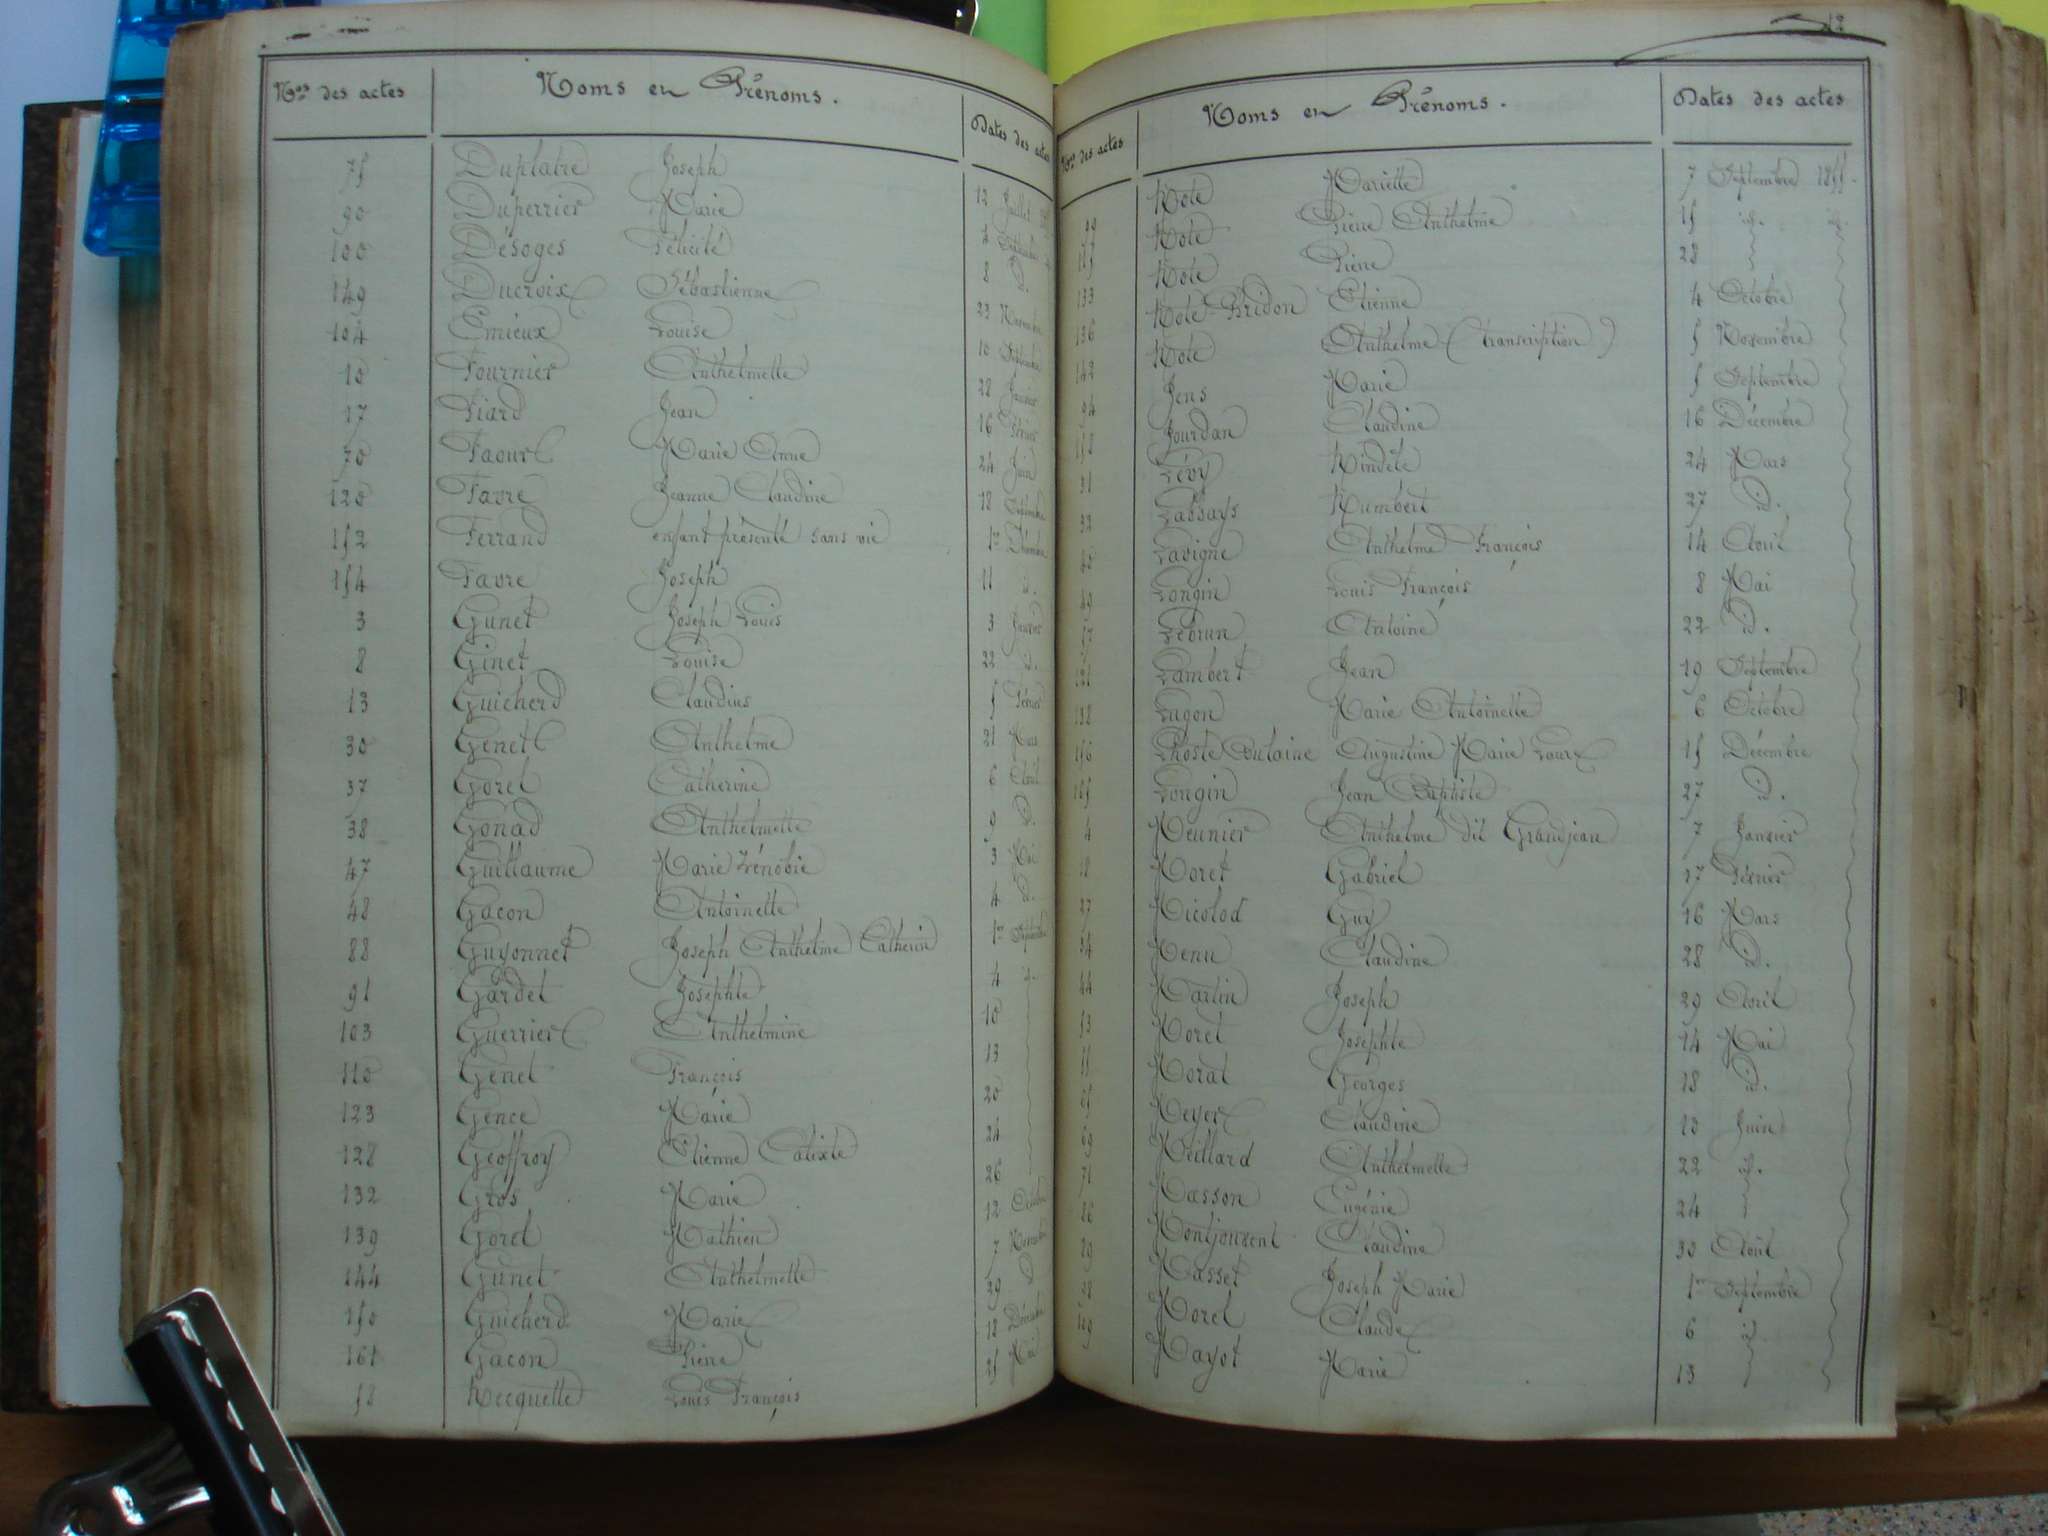 Nos des actes Noms et Prénoms. Dates des actes
75 Duplatre Joseph 12 Juillet
90 Duperrier Marie Septembre
100 Désoges Félicité 8 d.
149 Ducroix Sébastienne 22 Novembre
104 Emieux Louise 10 Septembre
10 Fournier Anthelmette 28 Janvier
17 Fiard Jean 16 Février
70 Faour Marie Anne 24 Juin
120 Favre Jeanne Claudine 18 Septembre
152 Ferrand enfant présenté sans vie 1er Décembre
154 Favre Joseph 11 id.
3 Gunet Joseph Louis 3 Janvier
8 Ginet Louise 22 id.
13 Guicherd Claudius 5 Février
30 Genet Anthelme 21 Mars
37 Gorel Catherine 6 Avril
38 Gonad Anthelmette 9 d.
47 Guillaume Marie Zénobie 3 Mai
48 Gacon Antoinette 4 d.
88 Guyonnet Joseph Anthelme Catherin 1er Septembre
91 Gardet Josephte 4 id.
103 Guerrier Anthelmine 10
110 Genet François 13
123 Gence Marie 20
128 Geoffroy Etienne Calixte 24
132 Gros Marie 26
139 Gorel Mathieu 12 Octobre
144 Gunet Anthelmette 7 Novembre
150 Guicherd Marie 29 d
161 Gacon Pierre 12 Décembre
58 Hecquette Louis François 25 Mai
Nos des actes Noms et Prénoms. Dates des actes
Hote Mariette 7 Septembre 1855.
Hote Pierre Anthelme 15 id. id.
Hote Pierre 28
133 Hote-Bridon Etienne 4 Octobre
136 Hote Anthelme (transcription) 5 Novembre
142 Jens Marie 5 Septembre
94 Jourdan Claudine 16 Décembre
158 Lévy Hindéle 24 Mars
31 Lassays Humbert 27 d.
32 Lavigne Anthelme François 14 Avril
Longin Louis François 8 Mai
49 Lebrun Antoine 22 d.
Lambert Jean 19 Septembre
Lugon Marie Antoinette 6 Octobre
138 Lhoste Dulaine Augustine Marie Laure 15 Décembre
156 Longin Jean Baptiste 27 d.
165 Meunier Anthelme dit Grandjean 7 Janvier
4 Moret Gabriel 17 Février
18 Nicolod Guy 16 Mars
27 Menu Claudine 28 d.
34 Martin Joseph 29 Avril
44 Morel Josephte 14 Mai
53 Morat Georges 18 d.
Meyer Claudine 13 Juin
Meillard Anthelmette 22 id.
69 Masson Eugénie 24
71 Montjouvent Claudine 30 Août
86 Masset Joseph Marie 1er Septembre
Morel Claude 6 id
Mayot Marie 13